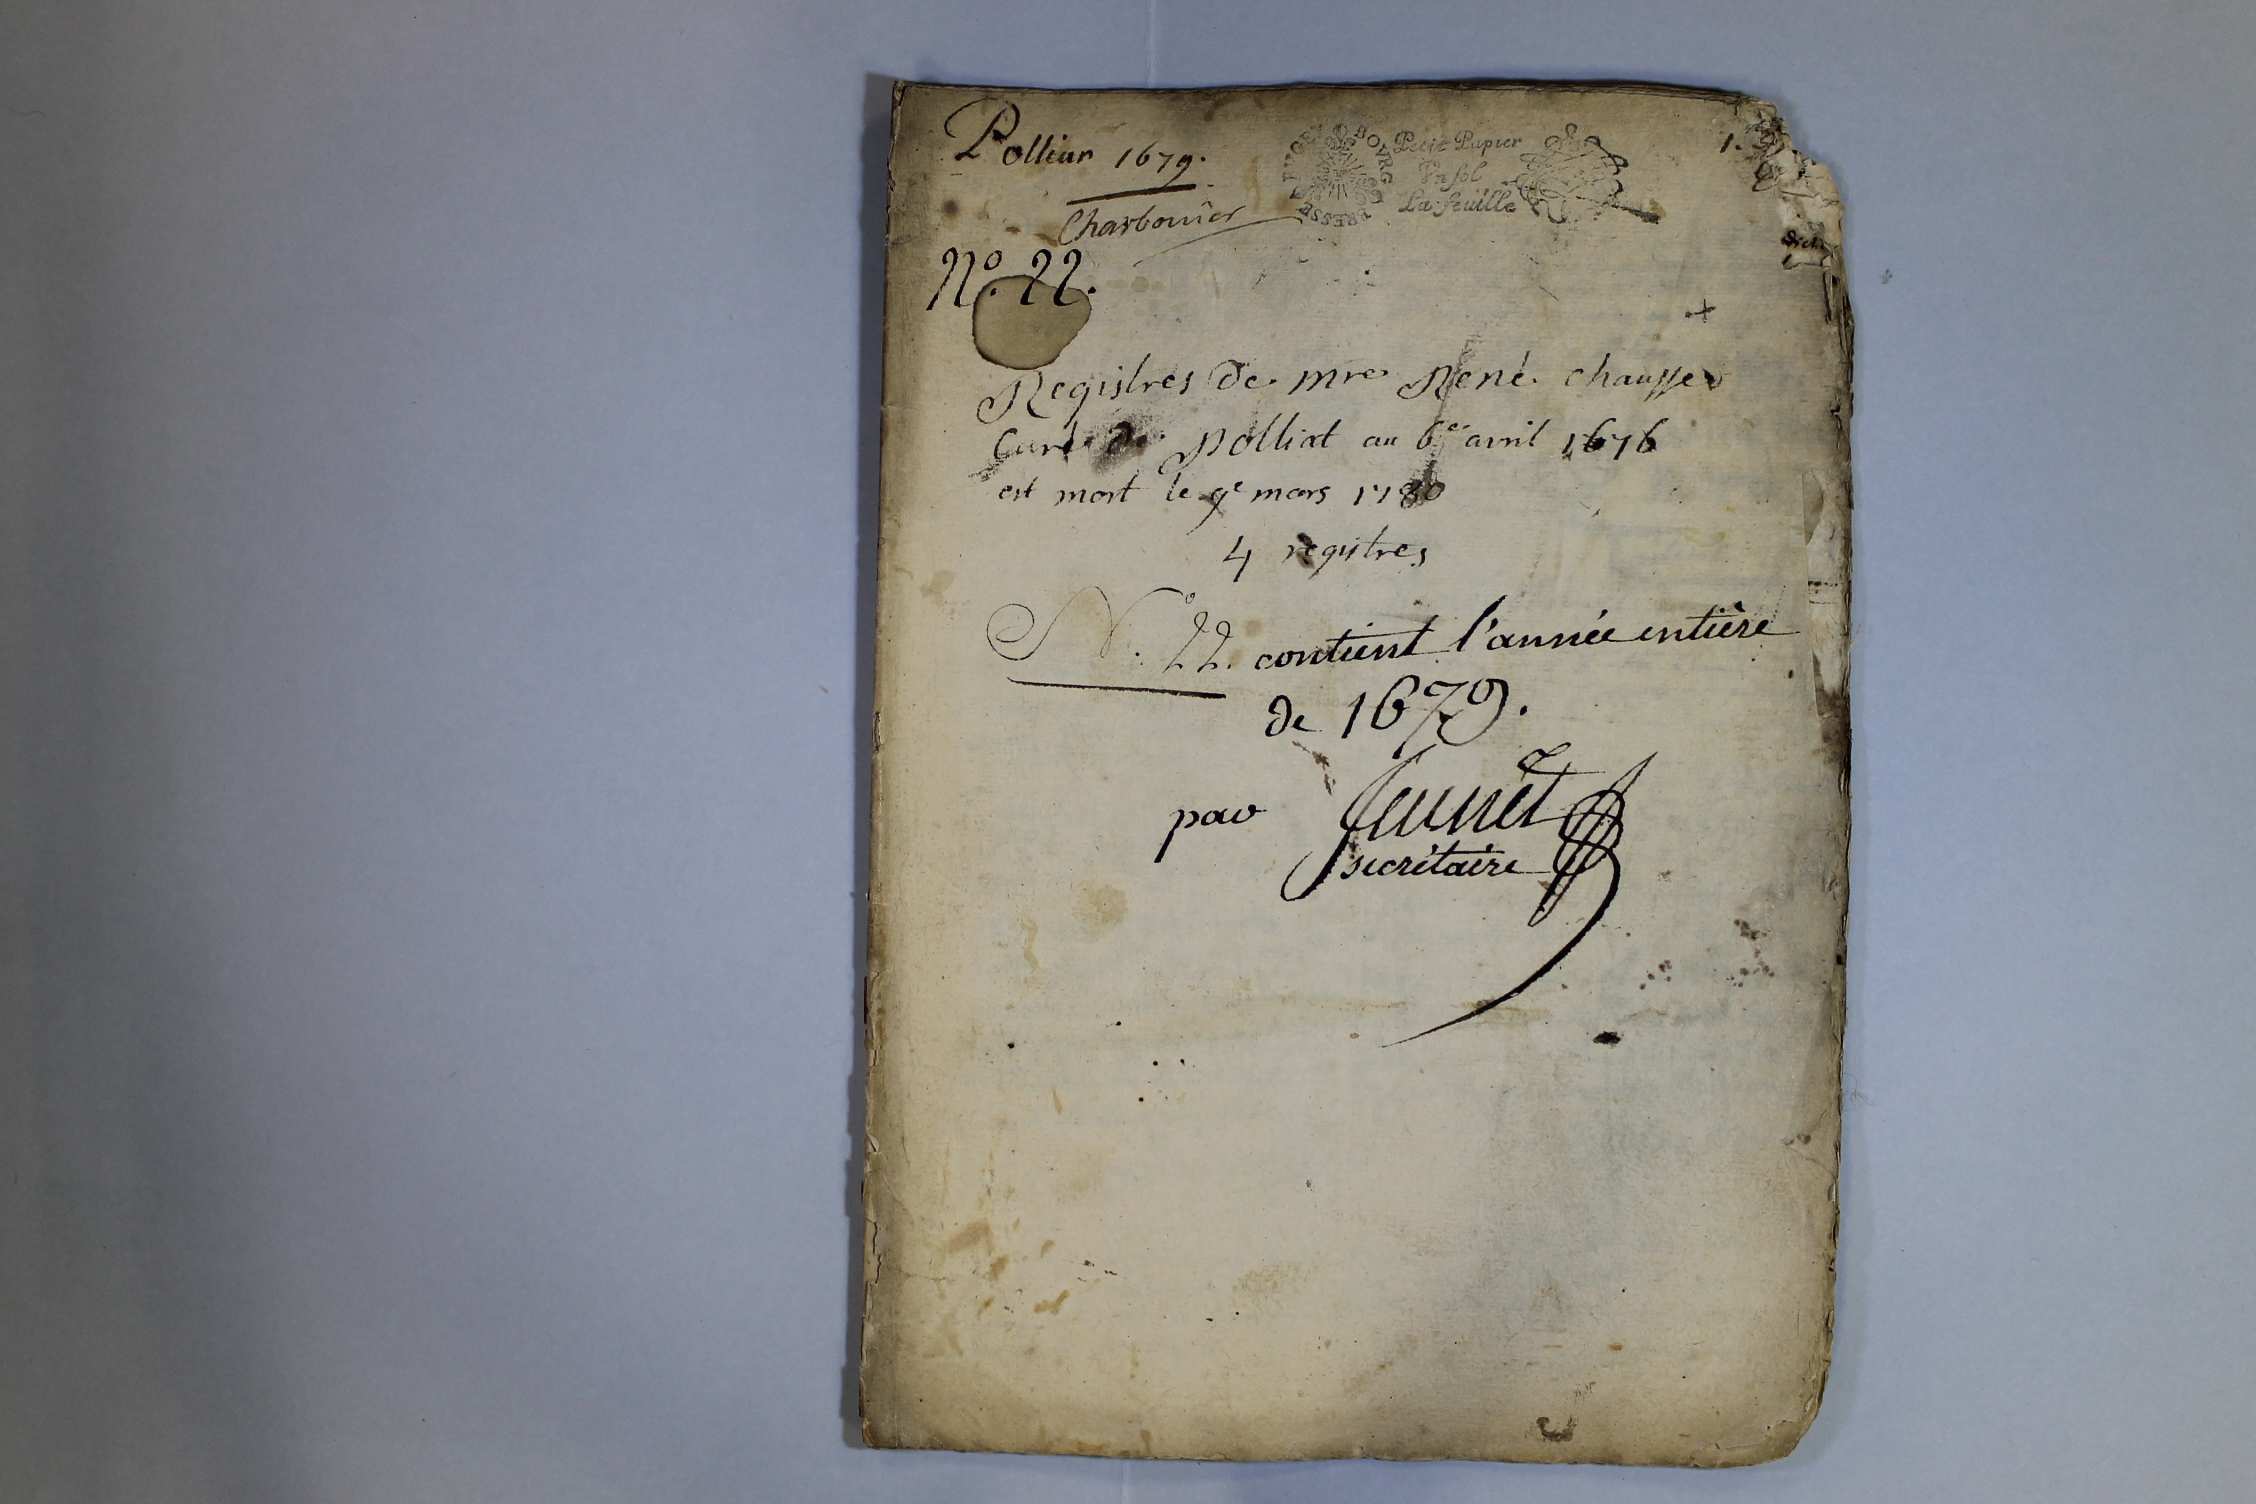 Polliat 1679.
Charbonier
BOVRG BRESSE BVGEY
Petit Papier
Vn sol
La feuille
1.
N.º 22.
Registres de mre René chausse
Curé de Polliat au 6e avril 1676
est mort le 9e mars 1780
4 registres
N.º 22. contient l'année entière
de 1679.
par Jeunet
secrétaire